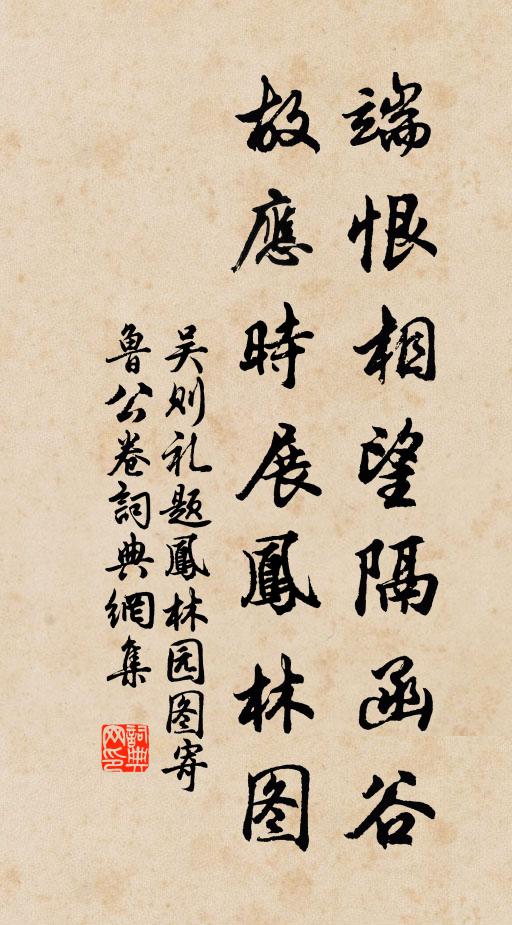 端恨相望隔函谷
故應時展鳳林图
吴则礼题鳳林园图寄
魯公卷詞典網集
詞典
网印